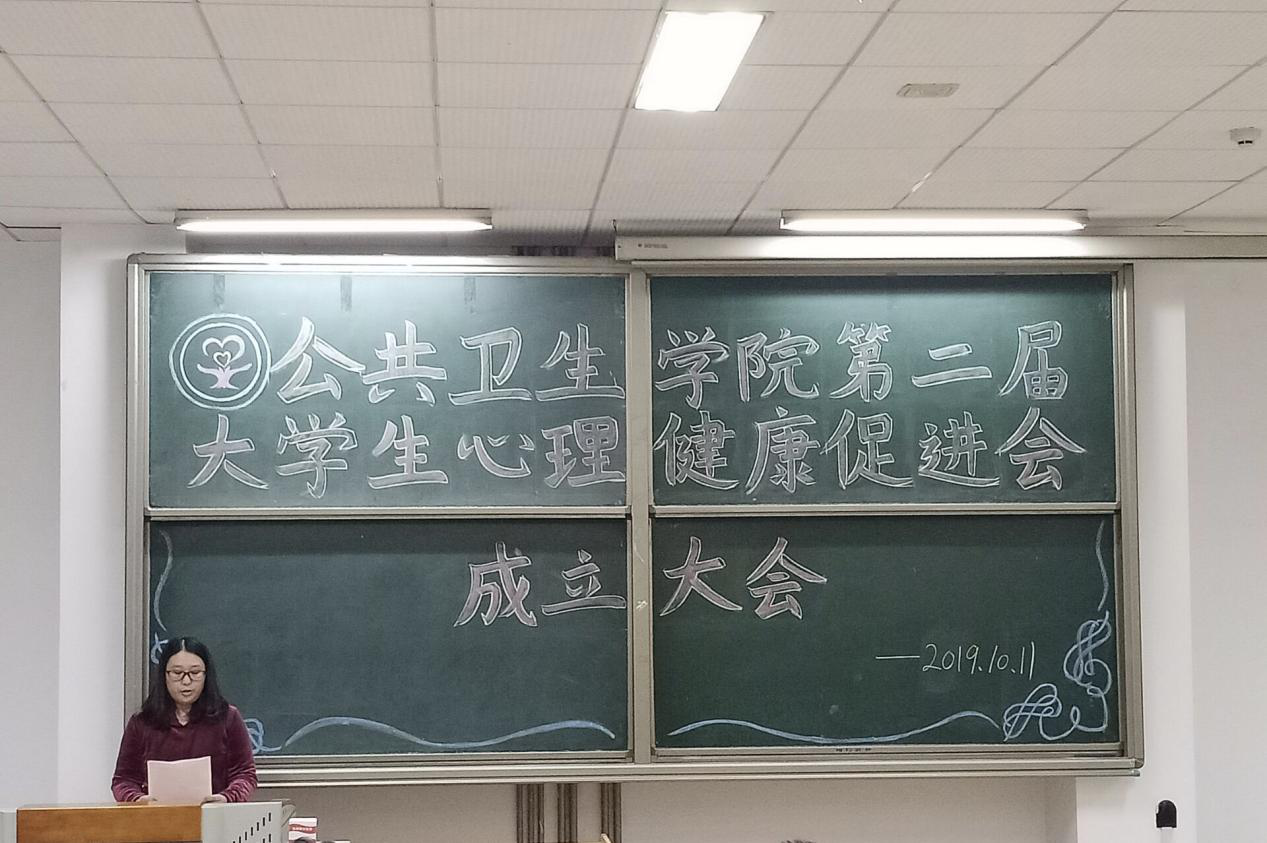 公共卫生学院第二届
大学生心理健康促进会
成立大会
—2019.10.11